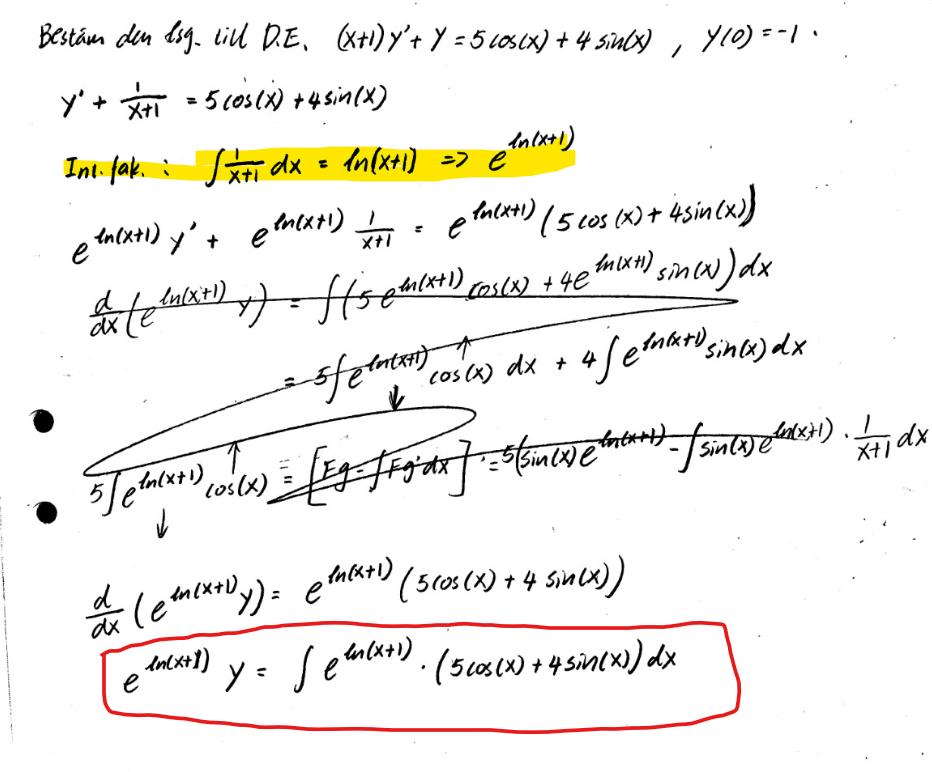 Bestäm den lsg. till D.E. (x+1)y' + y = 5cos(x) + 4sin(x) , y(0) = -1.
y' + 1/(x+1) = 5cos(x) + 4sin(x)
Int. fak. : ∫ 1/(x+1) dx = ln(x+1) => e^ln(x+1)
e^ln(x+1) y' + e^ln(x+1) 1/(x+1) = e^ln(x+1) (5cos(x) + 4sin(x))
d/dx (e^ln(x+1) y) = ∫(5e^ln(x+1) cos(x) + 4e^ln(x+1) sin(x))dx
= 5∫e^ln(x+1) cos(x) dx + 4∫e^ln(x+1) sin(x) dx
5∫e^ln(x+1) cos(x) = [Fg - ∫Fg'dx] = 5(sin(x)e^ln(x+1) - ∫sin(x)e^ln(x+1) · 1/(x+1) dx
d/dx (e^ln(x+1) y) = e^ln(x+1) (5cos(x) + 4sin(x))
e^ln(x+1) y = ∫e^ln(x+1) · (5cos(x) + 4sin(x))dx